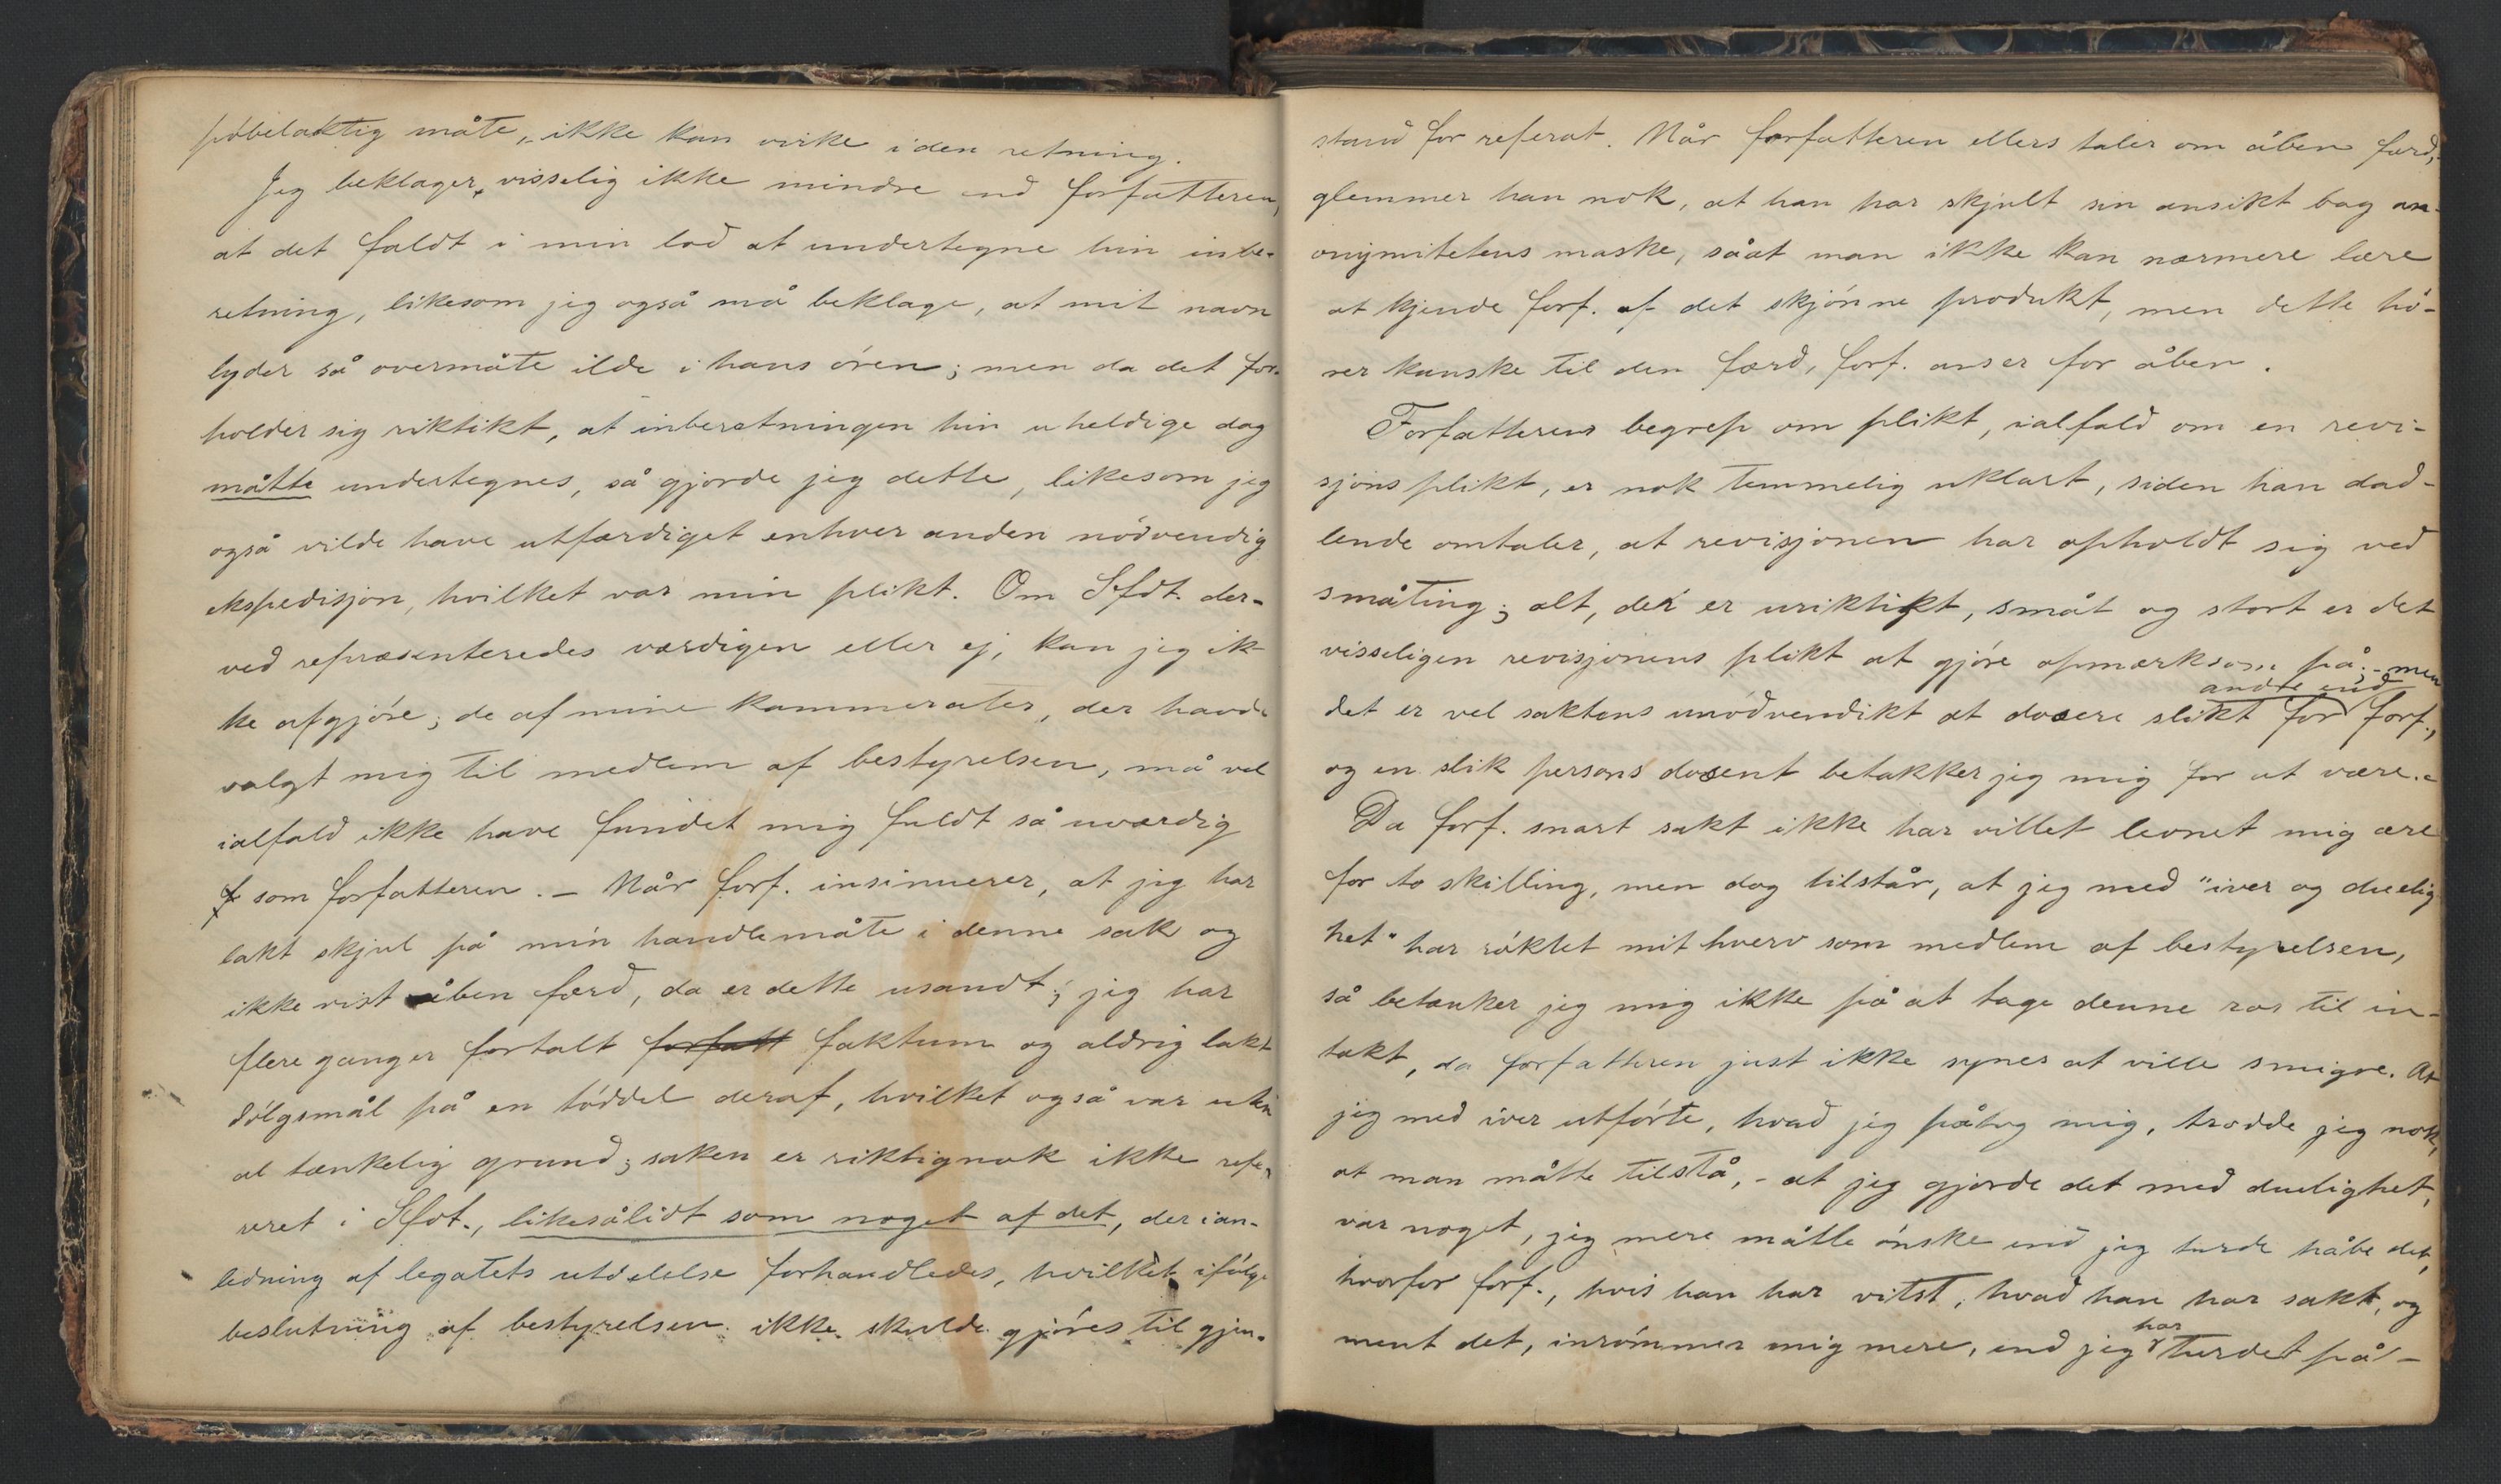 pöbelaktig måte, ikke kan virke i den retning.
Jeg beklager, visselig ikke mindre end forfatteren,
at det faldt i min lod at undertegne hin inbe-
retning, likesom jeg også må beklage, at mit navn
lyder så overmåte ilde i hans ören; men da det for-
holder sig riktikt, at inberetningen hin uheldige dag
måtte undertegnes, så gjorde jeg dette, likesom jeg
også vilde have utfærdiget enhver anden nödvendig
ekspedisjon, hvilket var min plikt. Om Sfdt. der-
ved repræsenteredes værdigen eller ej, kan jeg ik-
ke afgjöre; de af mine kammerater, der havde
valgt mig til medlem af bestyrelsen, må vel
ialfald ikke have fundet mig fuldt så uværdig
som forfatteren. – Når forf. insinuerer, at jeg har
lakt skjul på min handlemåte i denne sak og
ikke vist åben færd, da er dette usandt; jeg har
flere ganger fortalt forfatt faktum og aldrig lakt
dölgsmål på en töddel deraf, hvilket også var uten
al tænkelig grund; saken er riktignok ikke refe-
reret i Sfdt., likesålidt som noget af det, der i an-
ledning af legatets utdelelse forhandledes, hvilket ifölge
beslutning af bestyrelsen ikke skulde gjöres til gjen-
stand for referat. Når forfatteren ellers taler om åben færd,
glemmer han nok, at han har skjult sin ansikt bag an-
onymitetens maske, såat man ikke kan nærmere lære
at kjende forf. af det skjönne produkt, men dette hö-
rer kanske til den færd, forf. anser for åben.
Forfatterens begrep om plikt, ialfald om en revi-
sjons plikt, er nok temmelig uklart, siden han dad-
lende omtaler, at revisjonen har opholdt sig ved
småting; alt, der er uriktikt, småt og stort er det
visseligen revisjonens plikt at gjöre opmærksom på; – men
andre end
det er vel saktens unödvendikt at dosere slikt for forf.,
og en slik persons dosent betakker jeg mig for at være. –
Da forf. snart sakt ikke har villet levnet mig ære
for to skilling, men dog tilstår, at jeg med "iver og duelig-
het" har röktet mit hverv som medlem af bestyrelsen,
så betænker jeg mig ikke på at tage denne ros til in-
takt, da forfatteren just ikke synes at ville smigre. At
jeg med iver utförte, hvad jeg påtog mig, trodde jeg nok,
at man måtte tilstå, – at jeg gjorde det med duelighet,
var noget, jeg mere måtte önske end jeg turde håbe det,
hvorfor forf., hvis han har vitst, hvad han har sakt, og
har
ment det, inrömmer mig mere, end jeg turdet på-